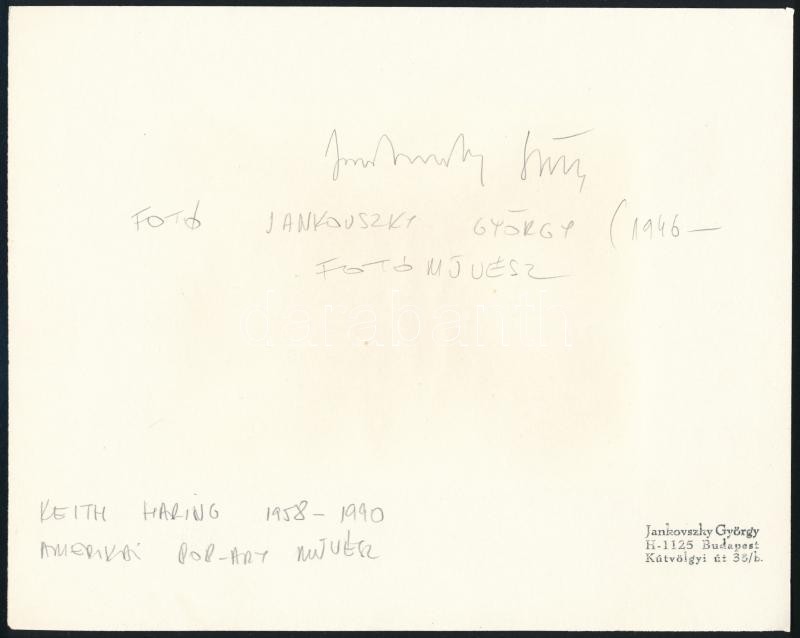 Jankovszky György
FOTÓ JANKOVSZKY GYÖRGY (1946—
FOTÓMŰVÉSZ
darabanth
KEITH HARING 1958-1990
AMERIKAI POP-ART MŰVÉSZ
Jankovszky György
H-1125 Budapest
Kútvölgyi út 35/b.